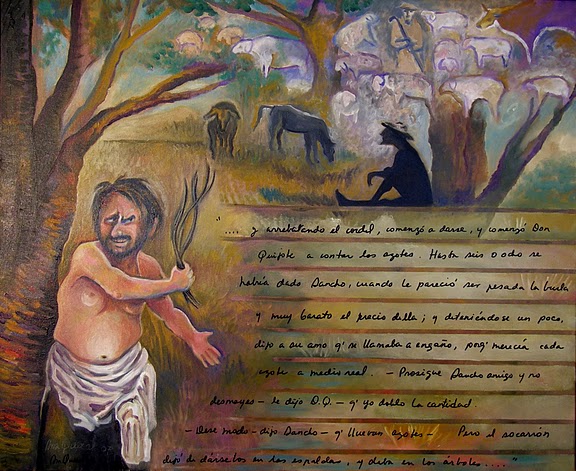 ".... y arrebatando el cordel, comenzó a darse, y comenzó Don
Quijote a contar los azotes. Hasta seis o ocho se
habría dado Sancho, cuando le pareció ser pesada la burla
y muy barato el precio della; y deteniéndose un poco,
dijo a su amo q' se llamaba a engaño, porq' merecía cada
azote a medio real. - Prosigue Sancho amigo y no
desmayes - le dijo D.Q. - q' yo doblo la cantidad
- Dese modo - dijo Sancho - q' lluevan azotes - Pero el socarrón
dejó de dárselos en las espaldas, y daba en los árboles...."